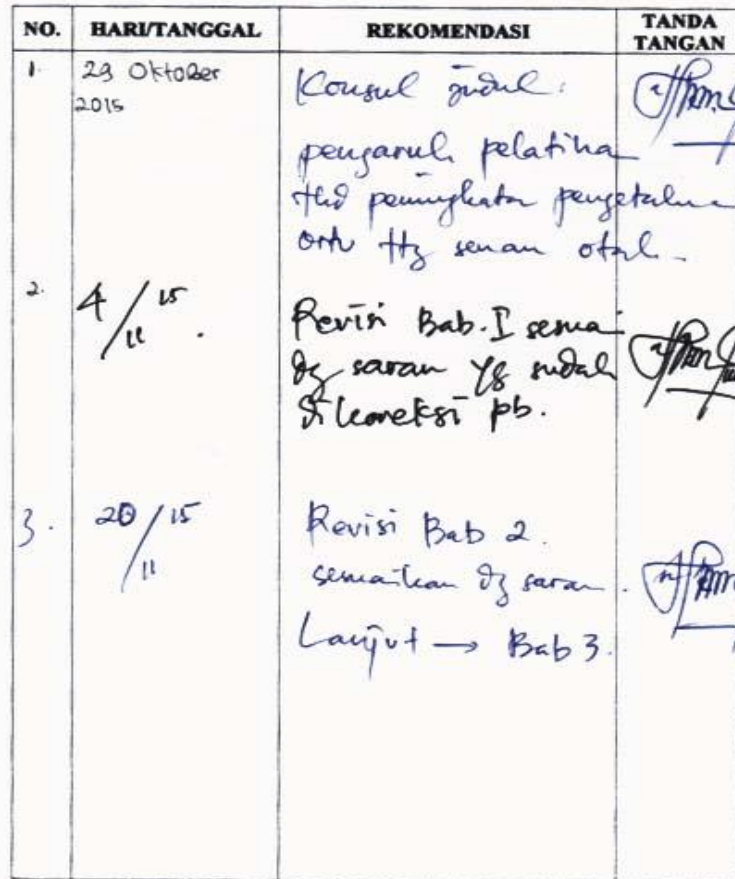 NO. HARI/TANGGAL REKOMENDASI TANDA TANGAN
1. 29 Oktober 2015
Konsul judul:
pengaruh pelatihan
thd peningkatan pengetahua
ortu ttg senam otak.
2. 4/11 15.
Revisi Bab. I sesuai
dg saran yg sudah
di koreksi pb.
3. 20/11 15
Revisi Bab 2.
sesuaikan dg saran.
Lanjut → Bab 3.